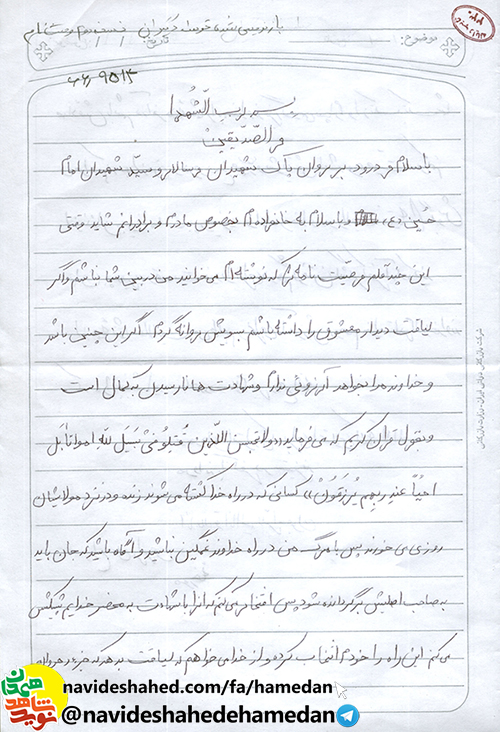 موضوع:
تاریخ: / /
بسم رب الشهدا
و الصدیقین
با سلام و درود بر روان پاک شهیدان و سالار و سید شهیدان امام
حسین (ع) و با سلام به خانواده ام بخصوص مادرم و برادرانم شاید وقتی
این چند قلم وصیت نامه را که نوشته ام می خوانید من در بین شما نباشم و اگر
لیاقت دیدار معشوق را داشته باشم بسویش روانه گردم اگر این چنین باشد
و خداوند مرا بخواهد آرزوئی ندارم و شهادت همانا رسیدن به کمال است
و بقول قرآن کریم که می فرماید «ولا تحسبن اللذین قتلو فی سبیل لله امواتا بل
احیاً عند ربهم یرزقون» کسانی که در راه خدا کشته می شوند زنده و در نزد مولایشان
روزی می خورند پس با مرگ من در راه خداوند غمگین نباشید و آگاه باشید که جان باید
به صاحب اصلیش برگردانده شود پس افتخار می کنم که آنرا با شهادت به محضر خدایم پیشکش
می کنم این راه را خودم انتخاب کرده و از خدا می خواهم که لیاقت بدهد که جزء
نوید شاهد همدان
navideshahed.com/fa/hamedan
@navideshahedehamedan